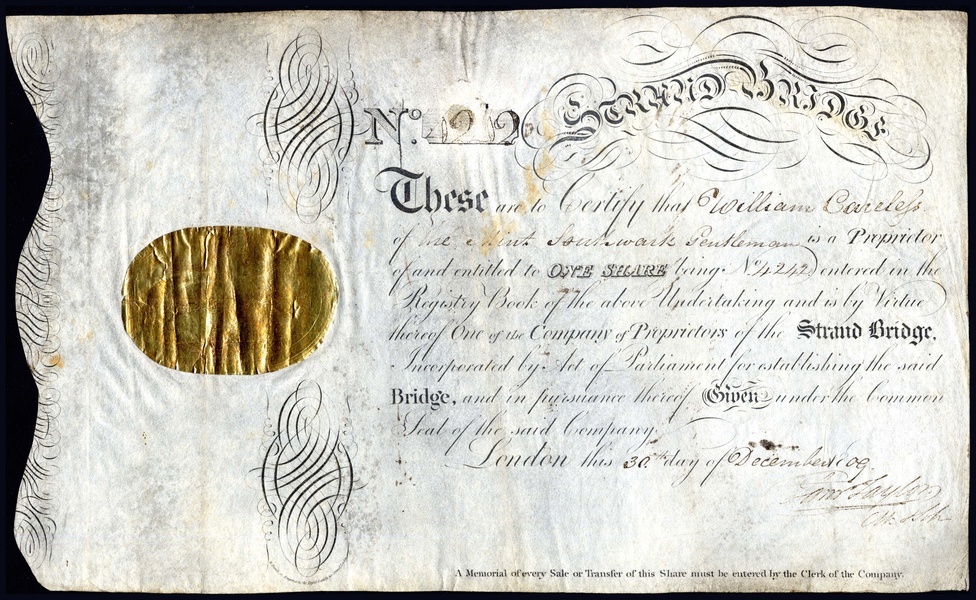 No. 4242 STRAND BRIDGE
These are to Certify that William Careless
of the Mint Southwark Gentleman is a Proprietor
of and entitled to ONE SHARE being No. 4242 entered in the
Registry Book of the above Undertaking and is by Virtue
thereof One of the Company of Proprietors of the Strand Bridge,
Incorporated by Act of Parliament for establishing the said
Bridge, and in pursuance thereof Given under the Common
Seal of the said Company.
London this 30th day of December 1809
Saml Taylor
A Memorial of every Sale or Transfer of this Share must be entered by the Clerk of the Company.